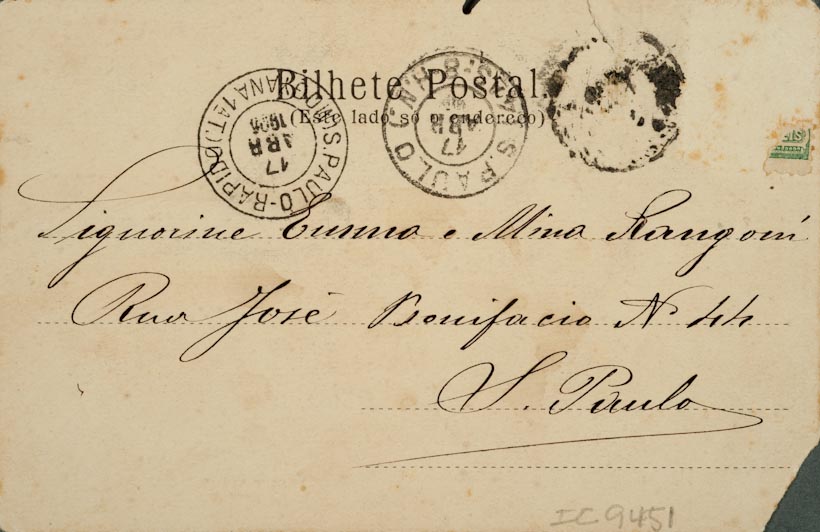 Bilhete Postal.
(Este lado só o endereço)
S. PAULO-RAPIDO
17
ABR
S. PAULO
17
ABR
Signorine Emma e Mina Rangoni
Rua José Bonifacio Nº 44
S. Paulo
IC 9451